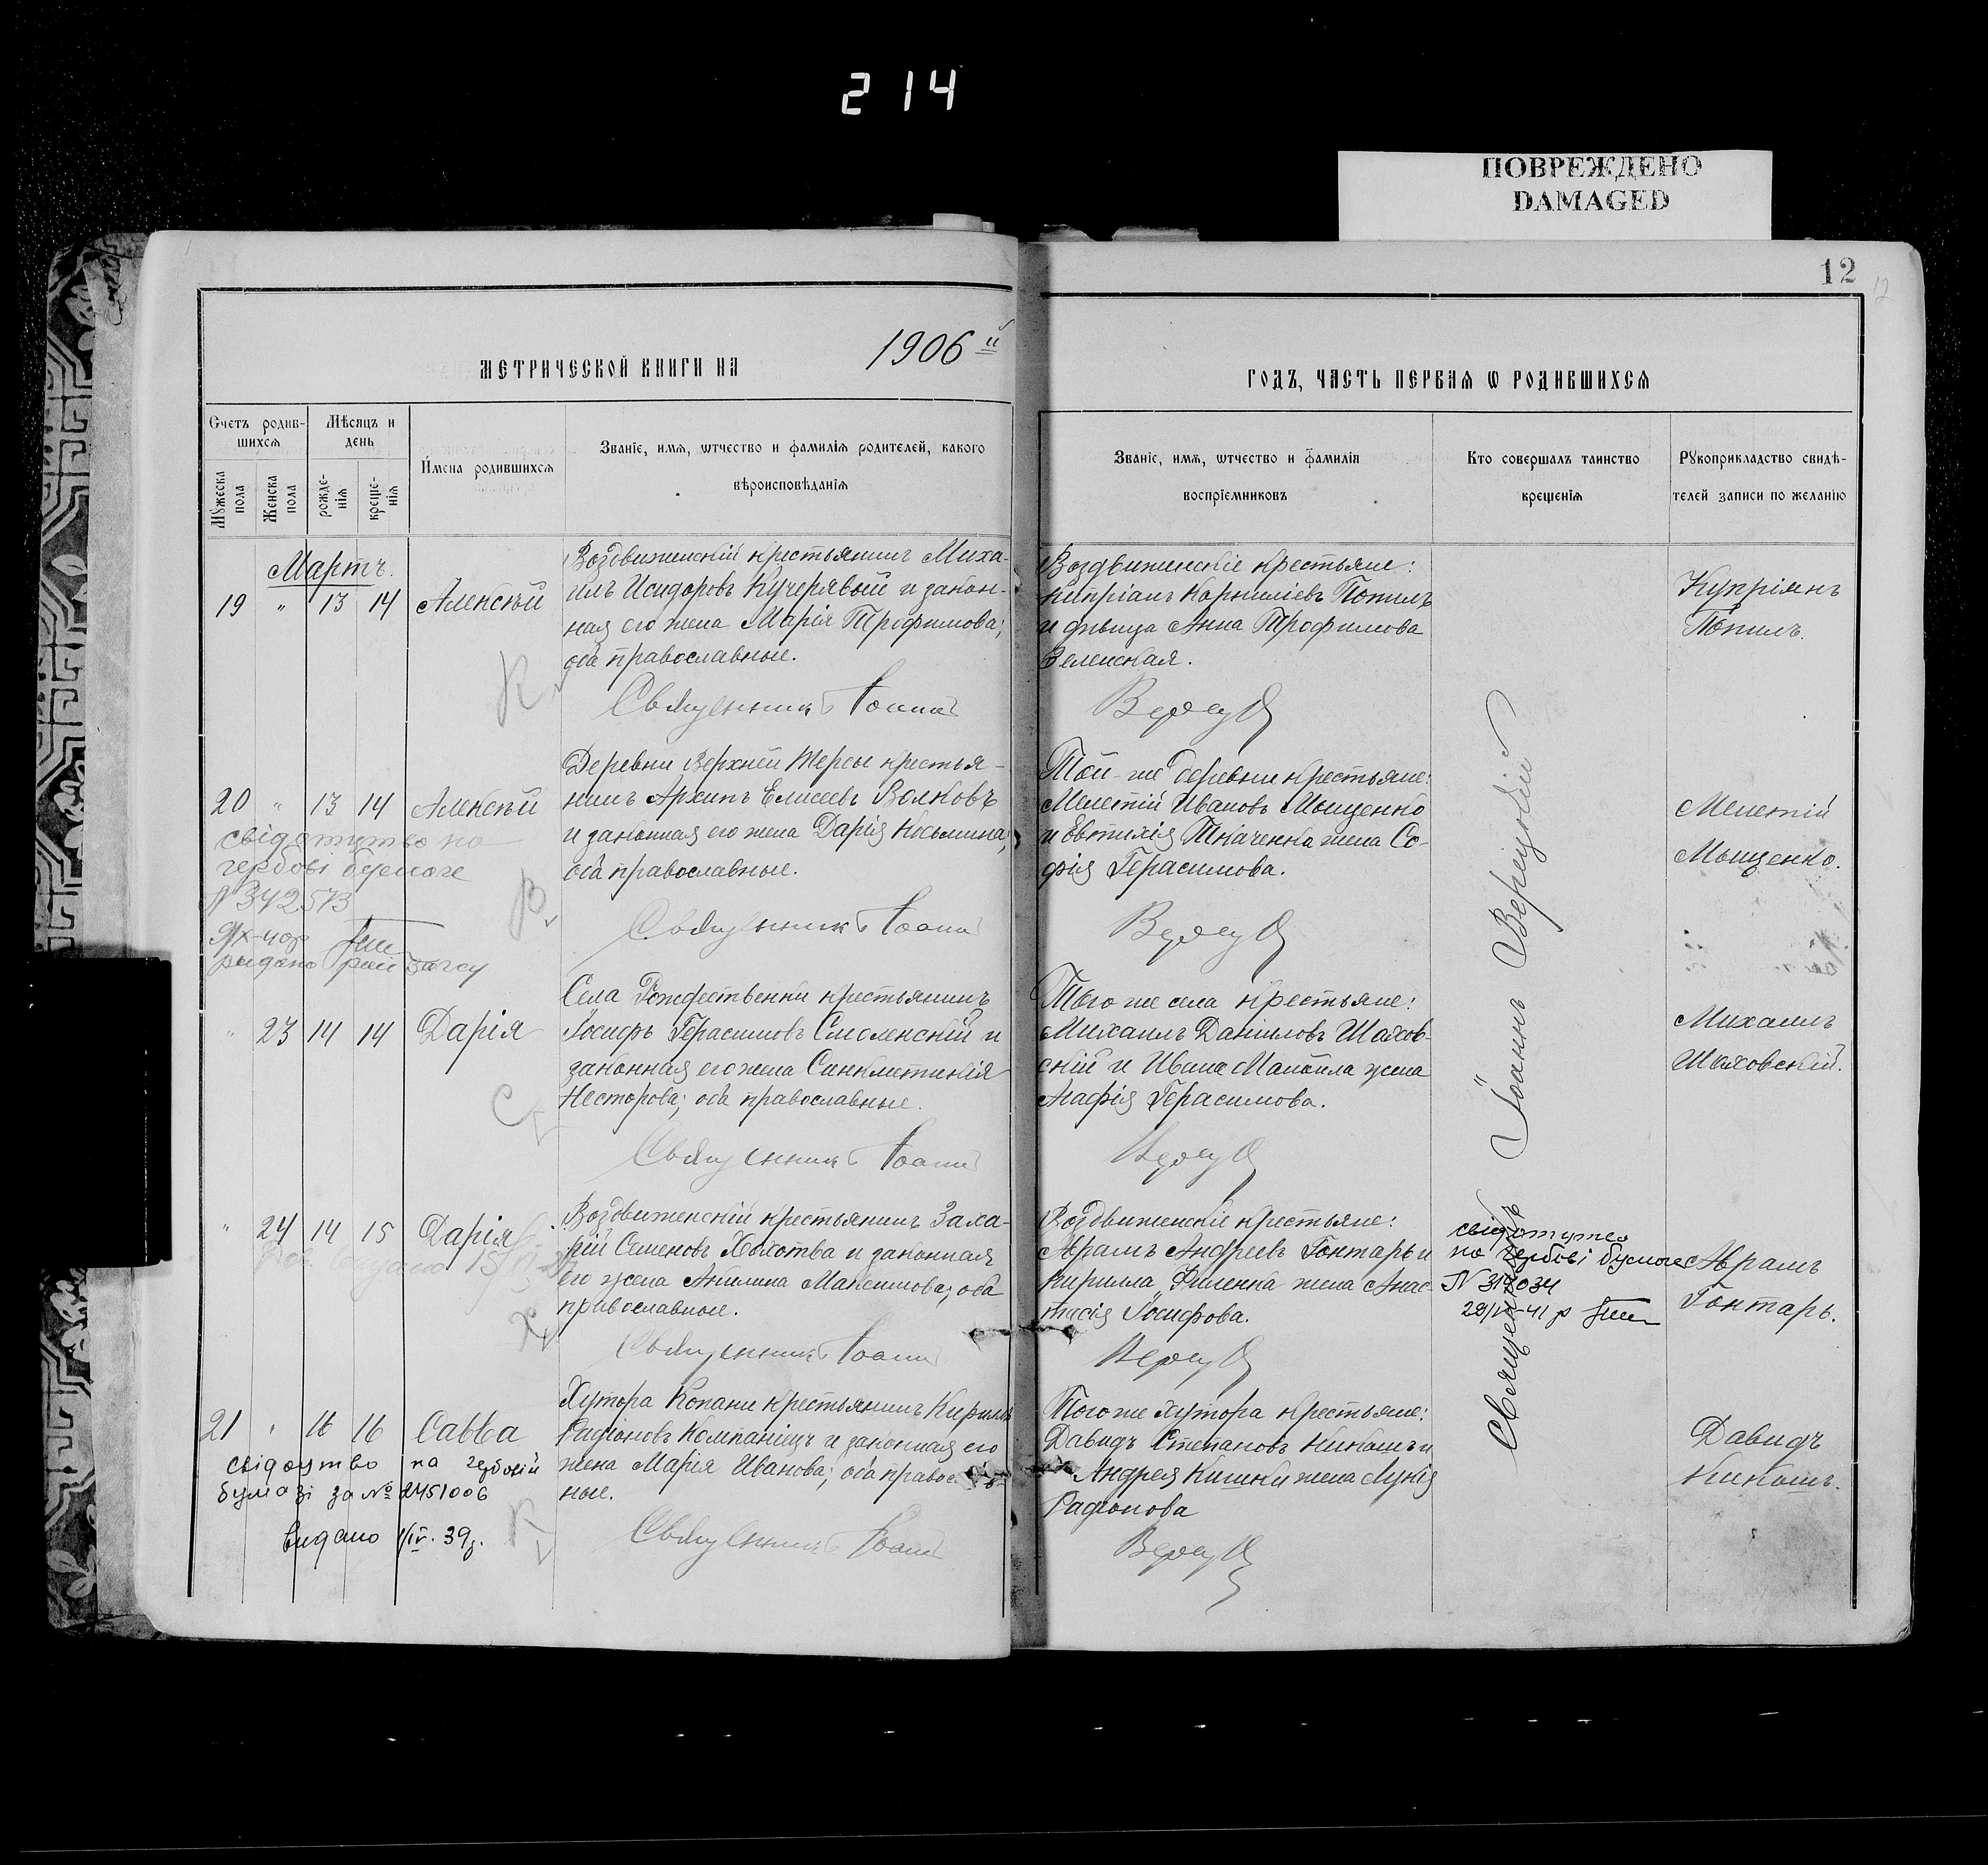 214
ПОВРЕЖДЕНО
DAMAGED
12
12
МЕТРИЧЕСКОЙ КНИГИ НА 1906 й
ГОДЪ, ЧАСТЬ ПЕРВАЯ Ѡ РОДИВШИХСЯ
Счетъ родив-
шихся
Мѣсяцъ и
день
Мужеска
пола
Женска
пола
рожде-
нія
креще-
нія
Имена родившихся
Званіе, имя, ѡтчество и фамилія родителей, какого
вѣроисповѣданія
Званіе, имя, ѡтчество и фамилія
воспріемниковъ
Кто совершалъ таинство
крещенія
Рукоприкладство свидѣ-
телей записи по желанію
Мартъ.
19 " 13 14 Алексѣй
Воздвиженскій крестьянинъ Миха-
илъ Исидоровъ Кучерявый и закон-
ная его жена Марія Трофимова;
оба православные.
Священникъ Іоаннъ
Воздвиженскіе крестьяне:
Кипріанъ Корниліевъ Попилъ
и дѣвица Анна Трофимова
Зеленская.
Купріянъ
Попилъ.
К
20 " 13 14 Алексѣй
свідотутво на
гербові бумоге
N 342573
видано рай загсу
Деревни Верхней Терсы крестья-
нинъ Архипъ Елисеевъ Волковъ
и законная его жена Дарія Косьмина;
оба православные.
Священникъ Іоаннъ
Той-же деревни крестьяне:
Мелетій Ивановъ Мыщенко
и Евтихія Ткаченка жена Со-
фія Герасимова.
Мелетій
Мыщенко.
В
" 23 14 14 Дарія
Села Рождественки крестьянинъ
Іосифъ Герасимовъ Смоленскій и
законная его жена Синклитикія
Несторова; оба православные.
Священникъ Іоаннъ
Того же села крестьяне:
Михаилъ Даніиловъ Шахов-
скій и Ивана Манойла жена
Агафія Герасимова.
Михаилъ
Шаховскій.
С
" 24 14 15 Дарія
Воздвиженскій крестьянинъ Заха-
рій Семеновъ Хвохства и законная
его жена Акилина Максимова; оба
православные.
Священникъ Іоаннъ
Воздвиженскіе крестьяне:
Аврамъ Андреевъ Гонтарь и
Кирилла Фименка жена Анас-
тасія Іосифова.
свідотутво
на гербові бумоге
N 319034
Аврамъ
Гонтарь.
Х
21 " 16 16 Савва
свідоутво на гербовій
бумазі за № 2451006
видано 1/IV. 39 р.
Хутора Копани крестьянинъ Кириллъ
Радіоновъ Компаніецъ и законная его
жена Марія Иванова; оба правос
ные.
Священникъ Іоаннъ
Того же хутора крестьяне:
Давидъ Степановъ Кикошъ и
Андрея Кишки жена Лукія
Радіонова
Давидъ
Кикошъ.
К
Священникъ Іоаннъ Верецкій